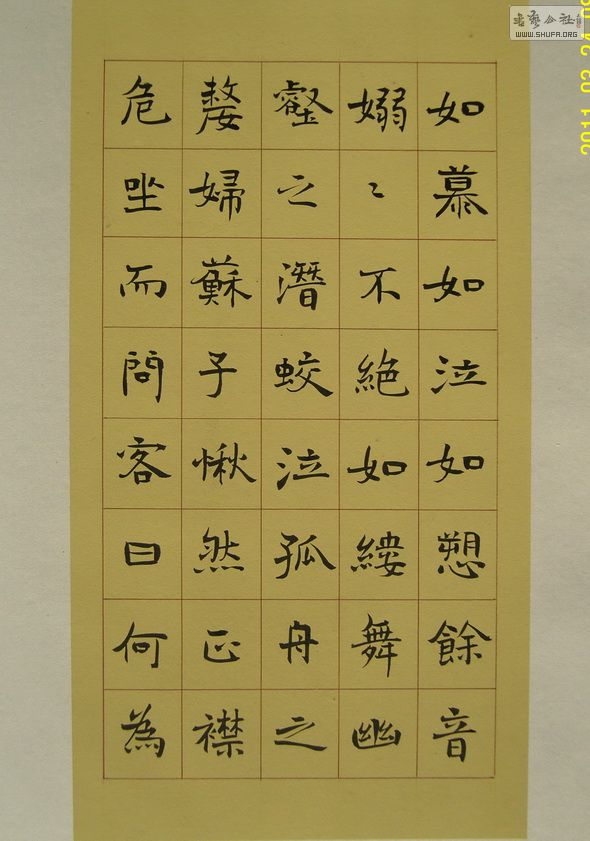 如慕如泣如愬餘音
嫋〻不絶如縷舞幽
壑之潛蛟泣孤舟之
嫠婦蘇子愀然正襟
危坐而問客曰何為
书艺公社
WWW.SHUFA.ORG
2011 02 24